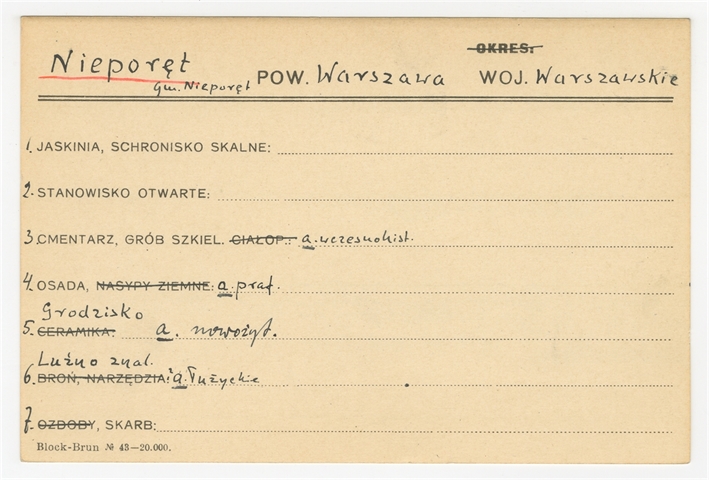 OKRES:
Nieporęt POW. Warszawa WOJ. Warszawskie
gm. Nieporęt
1. JASKINIA, SCHRONISKO SKALNE:
2. STANOWISKO OTWARTE:
3. CMENTARZ, GRÓB SZKIEL. CIAŁOP.: a. wczesnohist.
4. OSADA, NASYPY ZIEMNE: a. praf.
Grodzisko
5. CERAMIKA: a. nowożyt.
Luźno znal.
6. BROŃ, NARZĘDZIA: a. Łużyckie
7. OZDOBY, SKARB:
Block-Brun № 43—20.000.